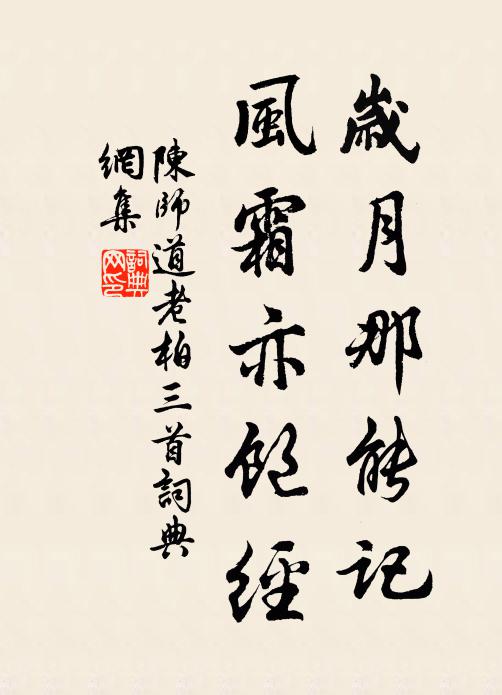 歲月那能記
風霜亦飽經
陳師道老柏三首詞典
網集
詞典網印